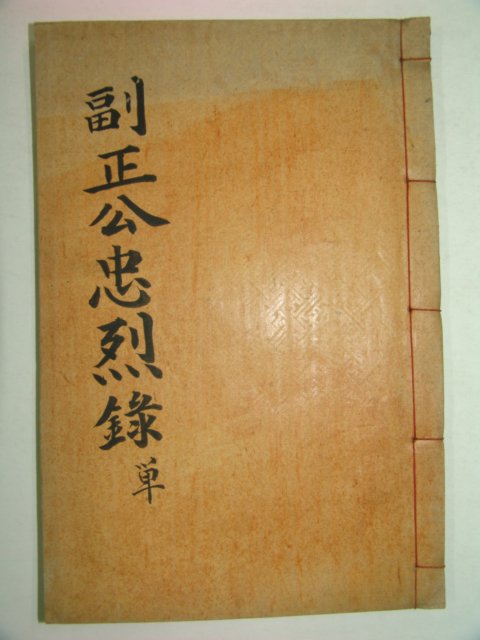 副正公忠烈錄 单